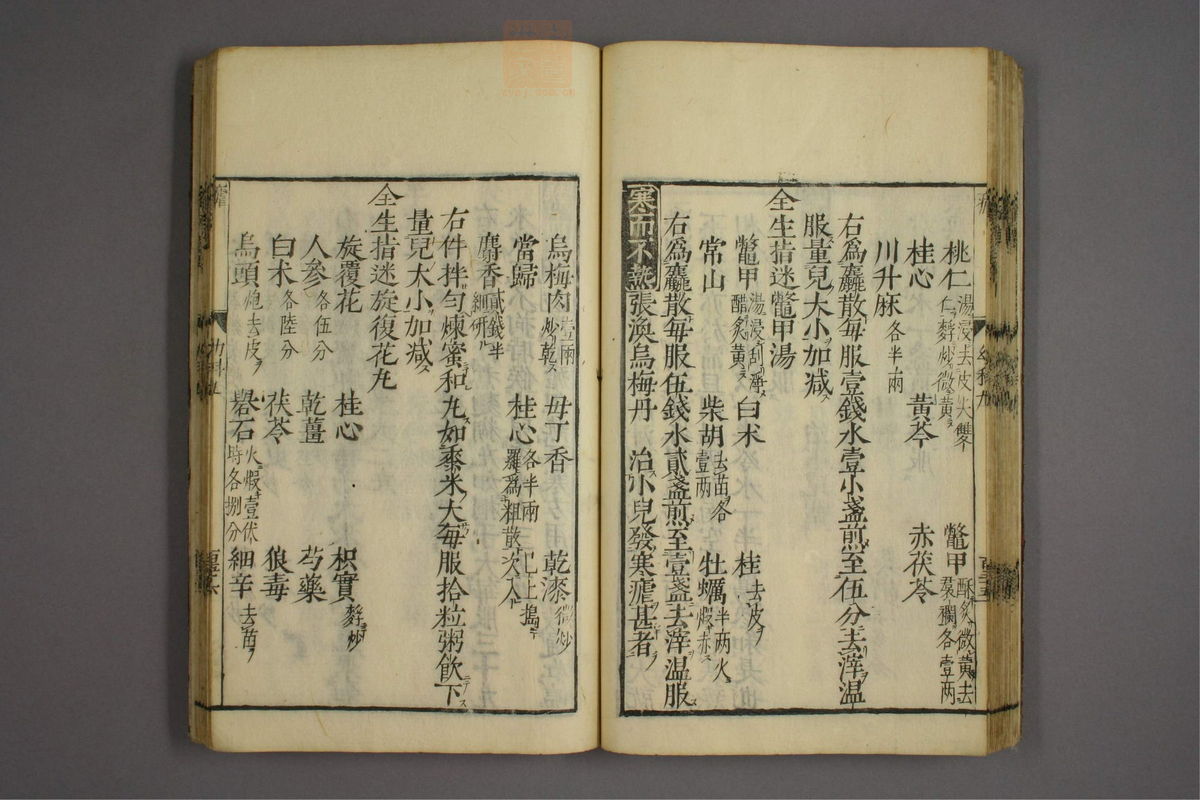 桃仁湯浸去皮尖雙仁麩炒微黃　鼈甲酥炙微黃去裙襴各壹两
桂心　黃芩　赤茯苓
川升麻各半兩
右爲麤散每服壹錢水壹小盞煎至伍分去滓温
服量兒大小加减
全生指迷鼈甲湯
鼈甲湯浸刮淨醋炙黃　白术　桂去皮
常山　柴胡去苗各壹两　牡蠣半两火煆赤
右爲麤散每服伍錢水貳盞煎至壹盞去滓温服
寒而不熱張渙烏梅丹　治小兒發寒瘧甚者
烏梅肉壹兩炒乾　母丁香　乾漆微炒
當歸　桂心各半兩羅爲粗散次入　已上搗
麝香貳錢半細研
右件拌勻煉蜜和丸如黍米大每服拾粒粥飲下
量兒大小加减
全生指迷旋復花丸
旋覆花　桂心　枳實麩炒
人參各伍分　乾薑　芍藥
白术各陸分　茯苓　狼毒
烏頭炮去皮　礜石火煆壹伏時各捌分　細辛去苗